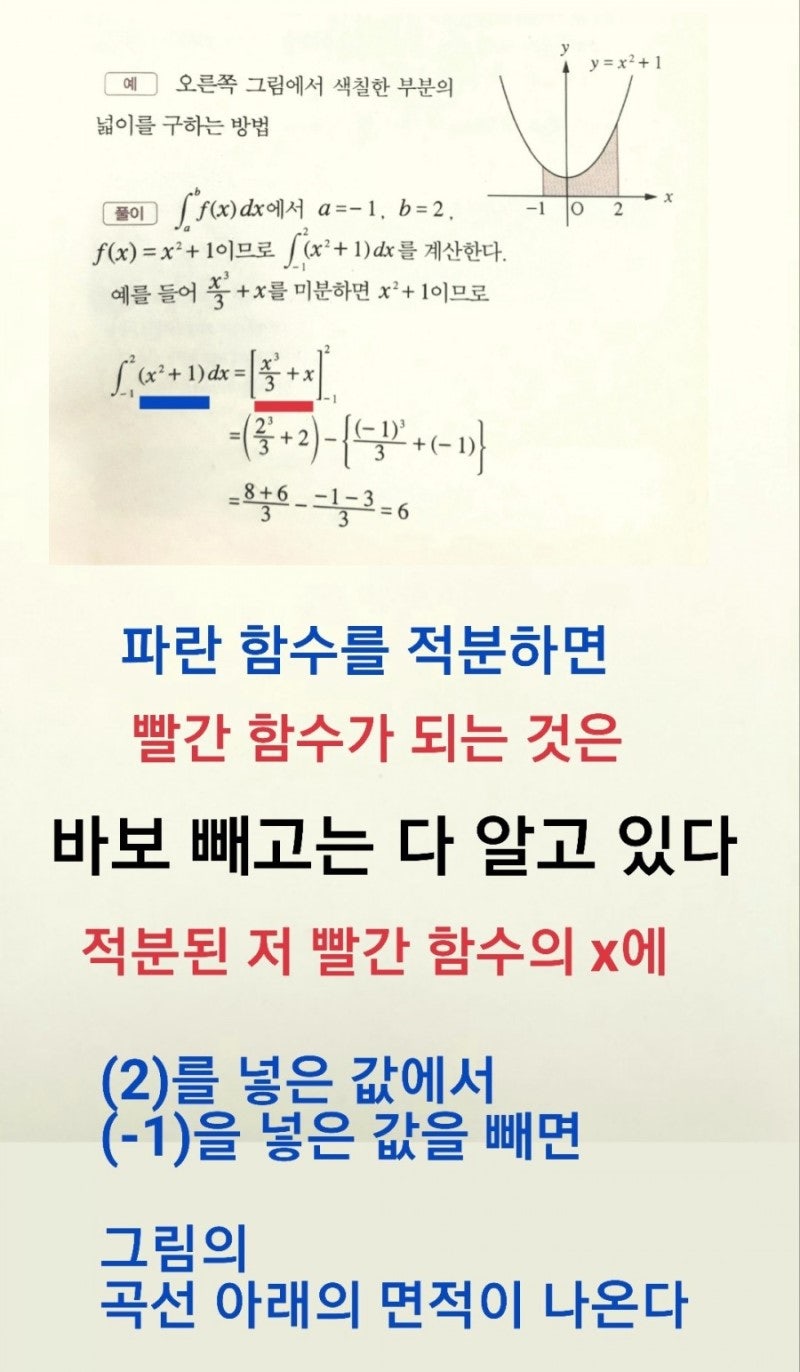 예 오른쪽 그림에서 색칠한 부분의
넓이를 구하는 방법
y
y=x²+1
-1 O 2 x
풀이 ∫_a^b f(x)dx에서 a=-1, b=2,
f(x)=x²+1이므로 ∫_{-1}^{2}(x²+1)dx를 계산한다.
예를 들어 x³/3+x를 미분하면 x²+1이므로
∫_{-1}^{2}(x²+1)dx=[x³/3+x]_{-1}^{2}
=(2³/3+2)-{(-1)³/3+(-1)}
=8+6/3--1-3/3=6
파란 함수를 적분하면
빨간 함수가 되는 것은
바보 빼고는 다 알고 있다
적분된 저 빨간 함수의 x에
(2)를 넣은 값에서
(-1)을 넣은 값을 빼면
그림의
곡선 아래의 면적이 나온다